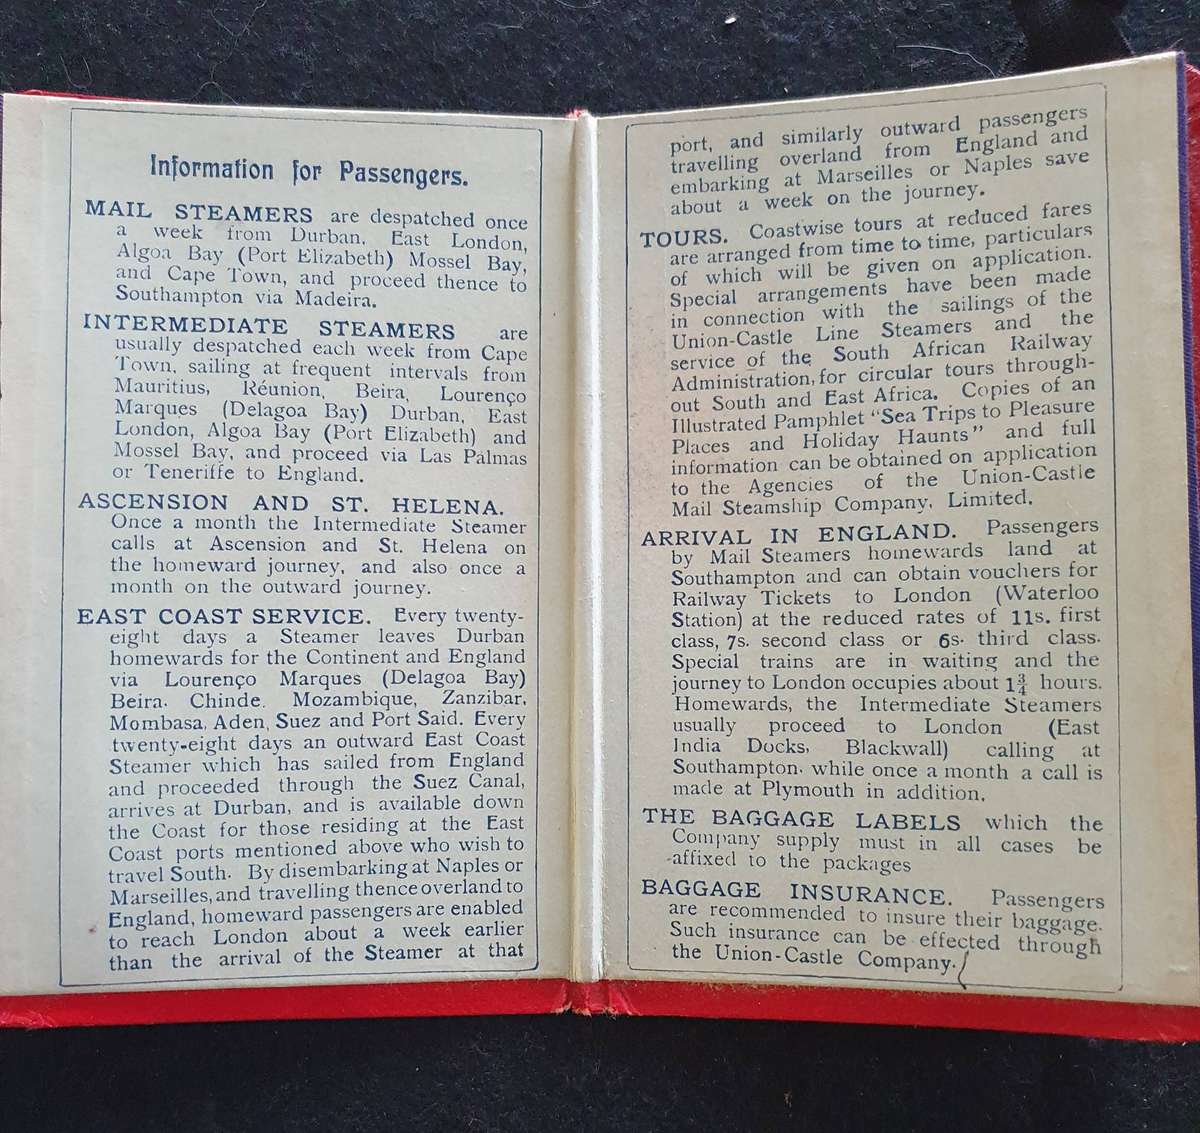 Information for Passengers.
MAIL STEAMERS are despatched once
a week from Durban, East London,
Algoa Bay (Port Elizabeth) Mossel Bay,
and Cape Town, and proceed thence to
Southampton via Madeira.
INTERMEDIATE STEAMERS are
usually despatched each week from Cape
Town, sailing at frequent intervals from
Mauritius, Réunion, Beira, Lourenço
Marques (Delagoa Bay) Durban, East
London, Algoa Bay (Port Elizabeth) and
Mossel Bay, and proceed via Las Palmas
or Teneriffe to England.
ASCENSION AND ST. HELENA.
Once a month the Intermediate Steamer
calls at Ascension and St. Helena on
the homeward journey, and also once a
month on the outward journey.
EAST COAST SERVICE. Every twenty-
eight days a Steamer leaves Durban
homewards for the Continent and England
via Lourenço Marques (Delagoa Bay)
Beira. Chinde. Mozambique, Zanzibar,
Mombasa, Aden, Suez and Port Said. Every
twenty-eight days an outward East Coast
Steamer which has sailed from England
and proceeded through the Suez Canal,
arrives at Durban, and is available down
the Coast for those residing at the East
Coast ports mentioned above who wish to
travel South. By disembarking at Naples or
Marseilles, and travelling thence overland to
England, homeward passengers are enabled
to reach London about a week earlier
than the arrival of the Steamer at that
port, and similarly outward passengers
travelling overland from England and
embarking at Marseilles or Naples save
about a week on the journey.
TOURS. Coastwise tours at reduced fares
are arranged from time to time, particulars
of which will be given on application.
Special arrangements have been made
in connection with the sailings of the
Union-Castle Line Steamers and the
service of the South African Railway
Administration, for circular tours through-
out South and East Africa. Copies of an
Illustrated Pamphlet "Sea Trips to Pleasure
Places and Holiday Haunts" and full
information can be obtained on application
to the Agencies of the Union-Castle
Mail Steamship Company, Limited.
ARRIVAL IN ENGLAND. Passengers
by Mail Steamers homewards land at
Southampton and can obtain vouchers for
Railway Tickets to London (Waterloo
Station) at the reduced rates of 11s. first
class, 7s. second class or 6s. third class.
Special trains are in waiting and the
journey to London occupies about 1¾ hours.
Homewards, the Intermediate Steamers
usually proceed to London (East
India Docks, Blackwall) calling at
Southampton. while once a month a call is
made at Plymouth in addition.
THE BAGGAGE LABELS which the
Company supply must in all cases be
affixed to the packages
BAGGAGE INSURANCE. Passengers
are recommended to insure their baggage.
Such insurance can be effected through
the Union-Castle Company.